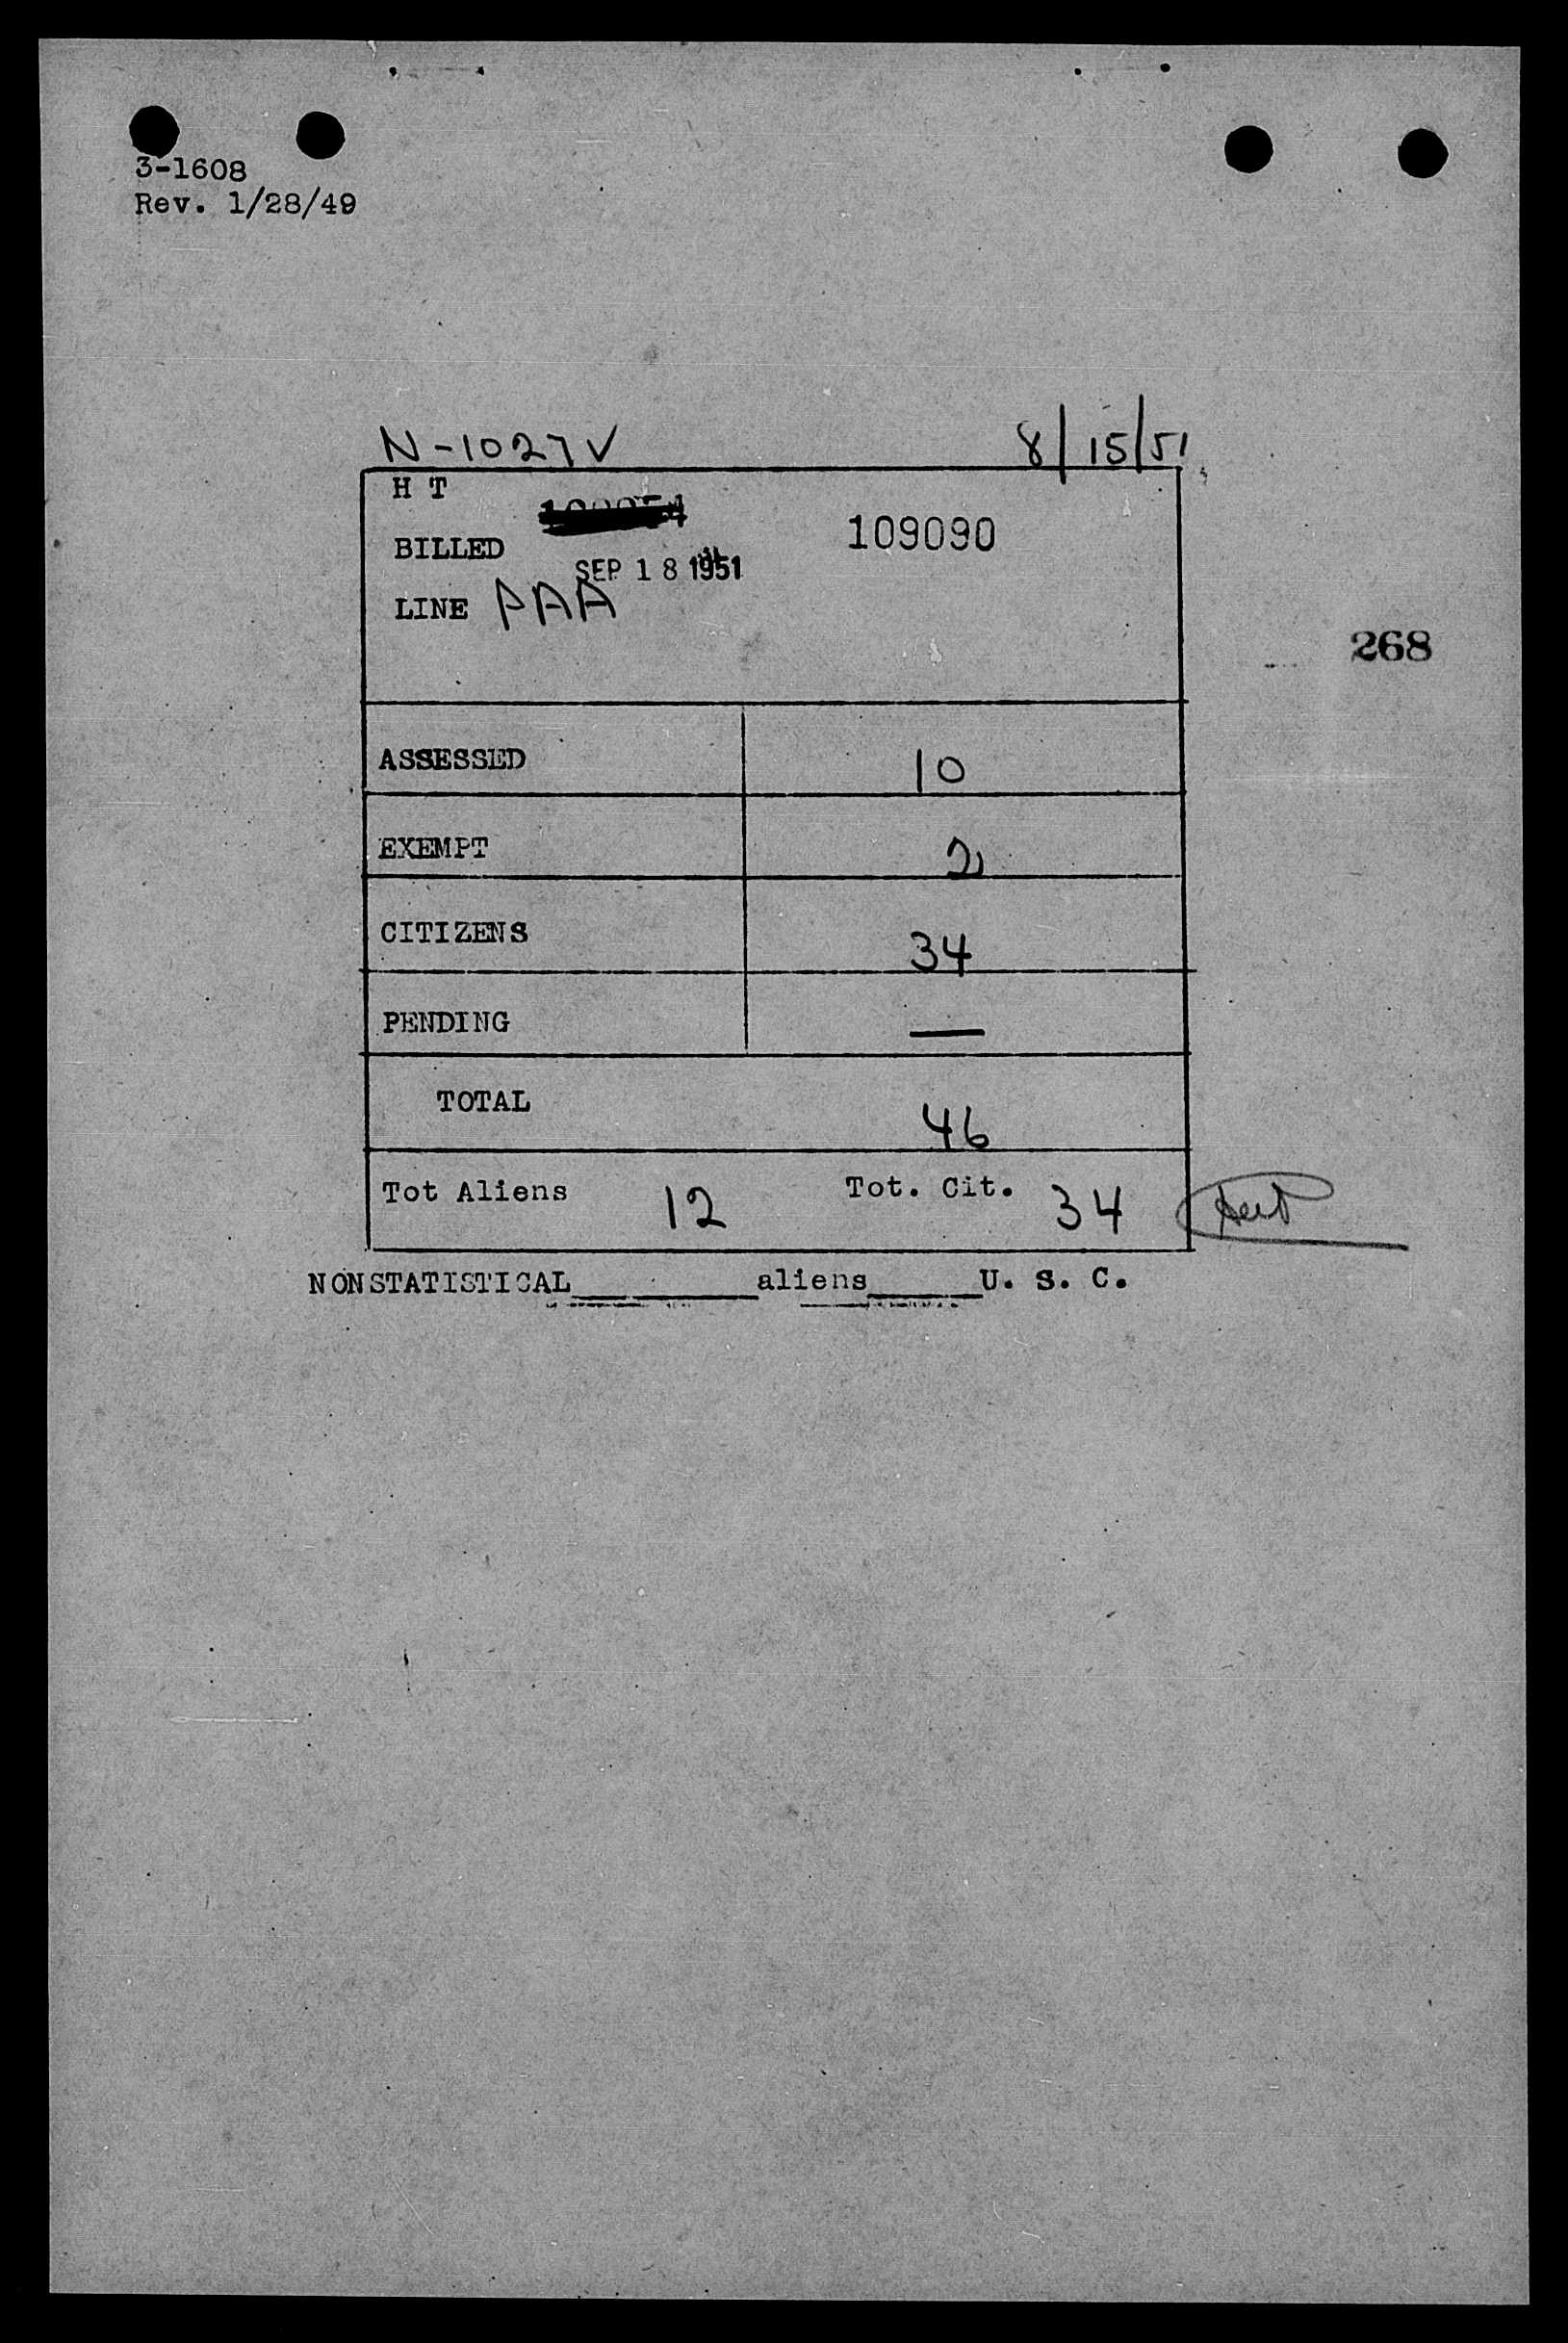 3-1608
Rev. 1/28/49
N-1027V 8/15/51
H T
109090
BILLED
SEP 18 1951
LINE PAA
268
ASSESSED 10
EXEMPT 2
CITIZENS 34
PENDING —
TOTAL 46
Tot Aliens 12 Tot. Cit. 34
NONSTATISTICAL______aliens______U. S. C.